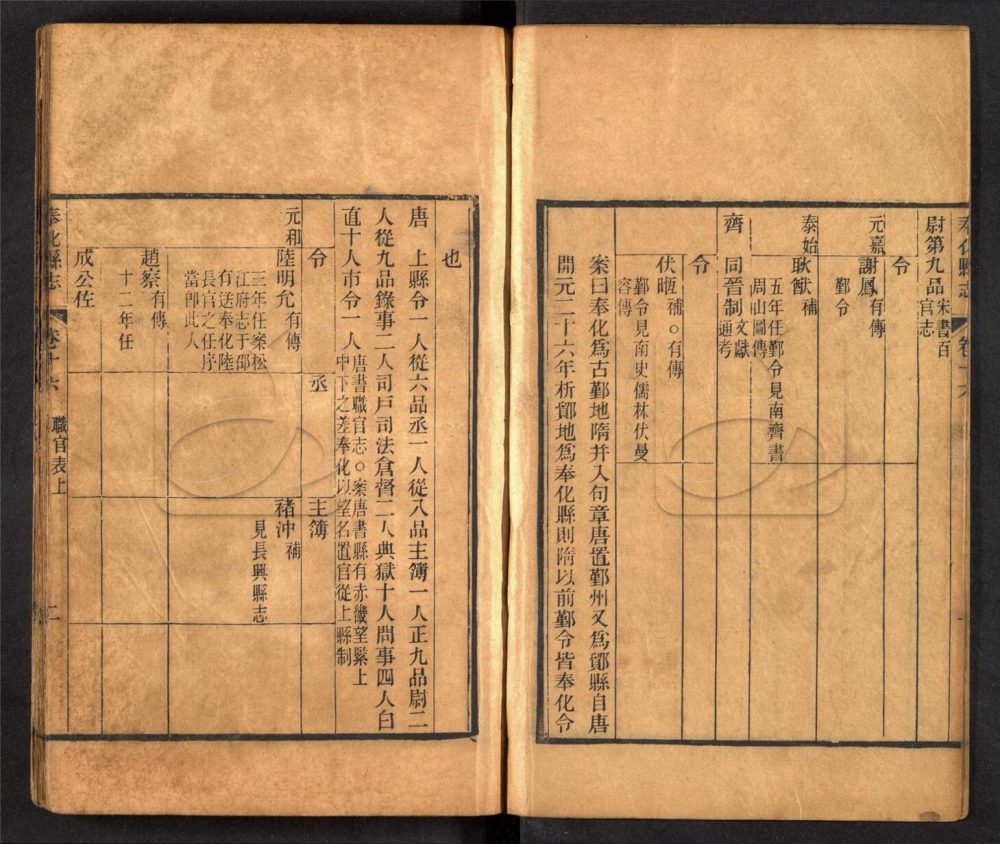 奉化縣志
卷十六
尉第九品宋書百
官志
令
元嘉謝鳳有傳
鄞令
泰始耿猷補
五年任鄞令見南齊書
周山圖傳
齊 同晉制文獻
通考
令
伏暅補○有傳
鄞令見南史儒林伏曼
容傳
案曰奉化爲古鄞地隋并入句章唐置鄞州又爲鄮縣自唐
開元二十六年析鄮地爲奉化縣則隋以前鄞令皆奉化令
也
唐 上縣令一人從六品丞一人從八品主簿一人正九品尉二
人從九品錄事二人司戶司法倉督二人典獄十人問事四人白
直十人市令一人唐書職官志○案唐書縣有赤畿望緊上
中下之差奉化以望名置官從上縣制
令 丞 主簿
元和陸明允有傳
三年任案松
江府志于邵
有送奉化陸
長官之任序
當卽此人
褚沖補
見長興縣志
趙察有傳
十二年任
成公佐
奉化縣志
卷十六
職官表上
二